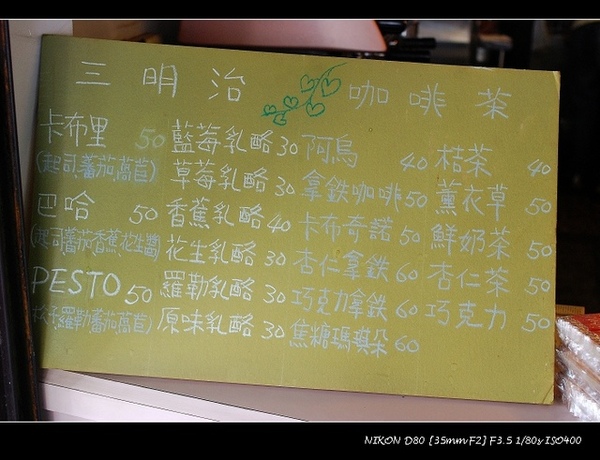 三明治 咖啡茶
卡布里 50 藍莓乳酪 30 阿烏 40 桔茶 40
(起司蕃茄萵苣) 草莓乳酪 30 拿鐵咖啡 50 薰衣草 50
巴哈 50 香蕉乳酪 40 卡布奇諾 50 鮮奶茶 50
(起司蕃茄香蕉花生醬) 花生乳酪 30 杏仁拿鐵 60 杏仁茶 50
PESTO 50 羅勒乳酪 30 巧克力拿鐵 60 巧克力 50
松子羅勒蕃茄萵苣) 原味乳酪 30 焦糖瑪琪朵 60
NIKON D80 [35mm F2] F3.5 1/80s ISO400